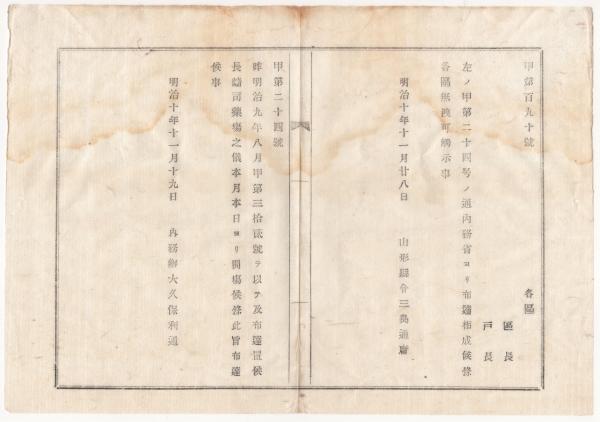 甲第百九十號
各區
區長
戸長
左ノ甲第二十四号ノ通内務省ヨリ布達相成候條
各區無洩可觸示事
明治十年十一月廿八日
山形縣令三島通庸
甲第二十四號
昨明治九年八月甲第三拾貳號ヲ以テ及布達置候
長崎司藥塲之儀本月本日ヨリ開塲候條此旨布達
候事
明治十年十一月十九日
内務卿大久保利通